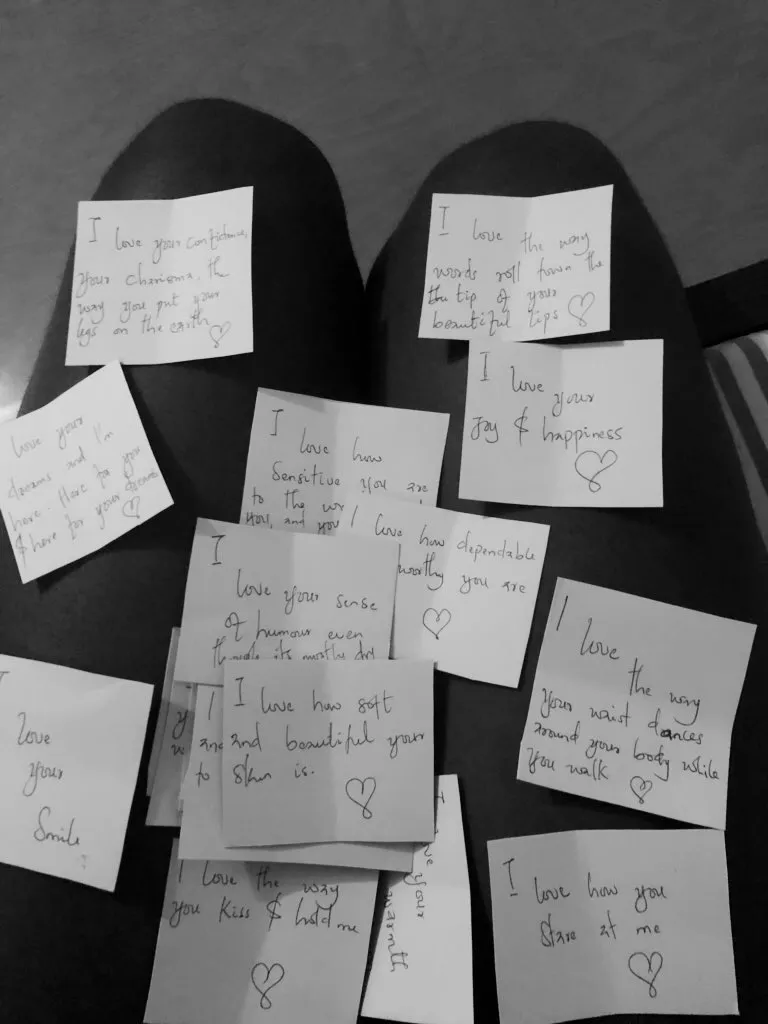 I love your confidence,
your charisma, the
way you put your
legs on the earth
I
love the way
words roll down the
the tip of your
beautiful lips
I love your
Joy & happiness
love your
dreams and I'm
here. Here for you
& here for your dreams
I
love how
Sensitive you are
to the
you, and you
I love how dependable
worthy you are
I
love your sense
of humour even
though its mostly dry
I
love
the way
your waist dances
around your body while
you walk
I
love
your
Smile
I love how soft
and beautiful your
skin is.
I
and
to
I love the way
you kiss & hold me
your
warmth
I love how you
stare at me